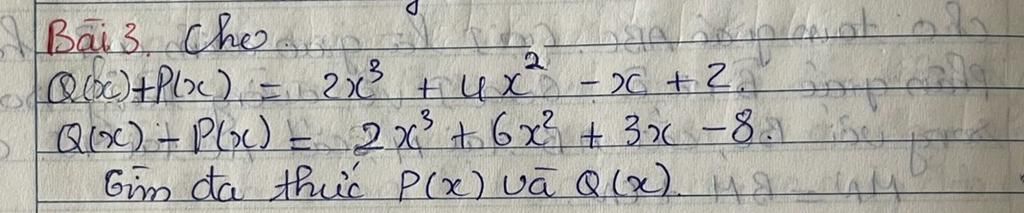 Bài 3. Cho
Q(x)+P(x) = 2x³ + 4x² - x + 2.
Q(x) - P(x) = 2x³ + 6x² + 3x - 8.
Tìm đa thức P(x) và Q(x).